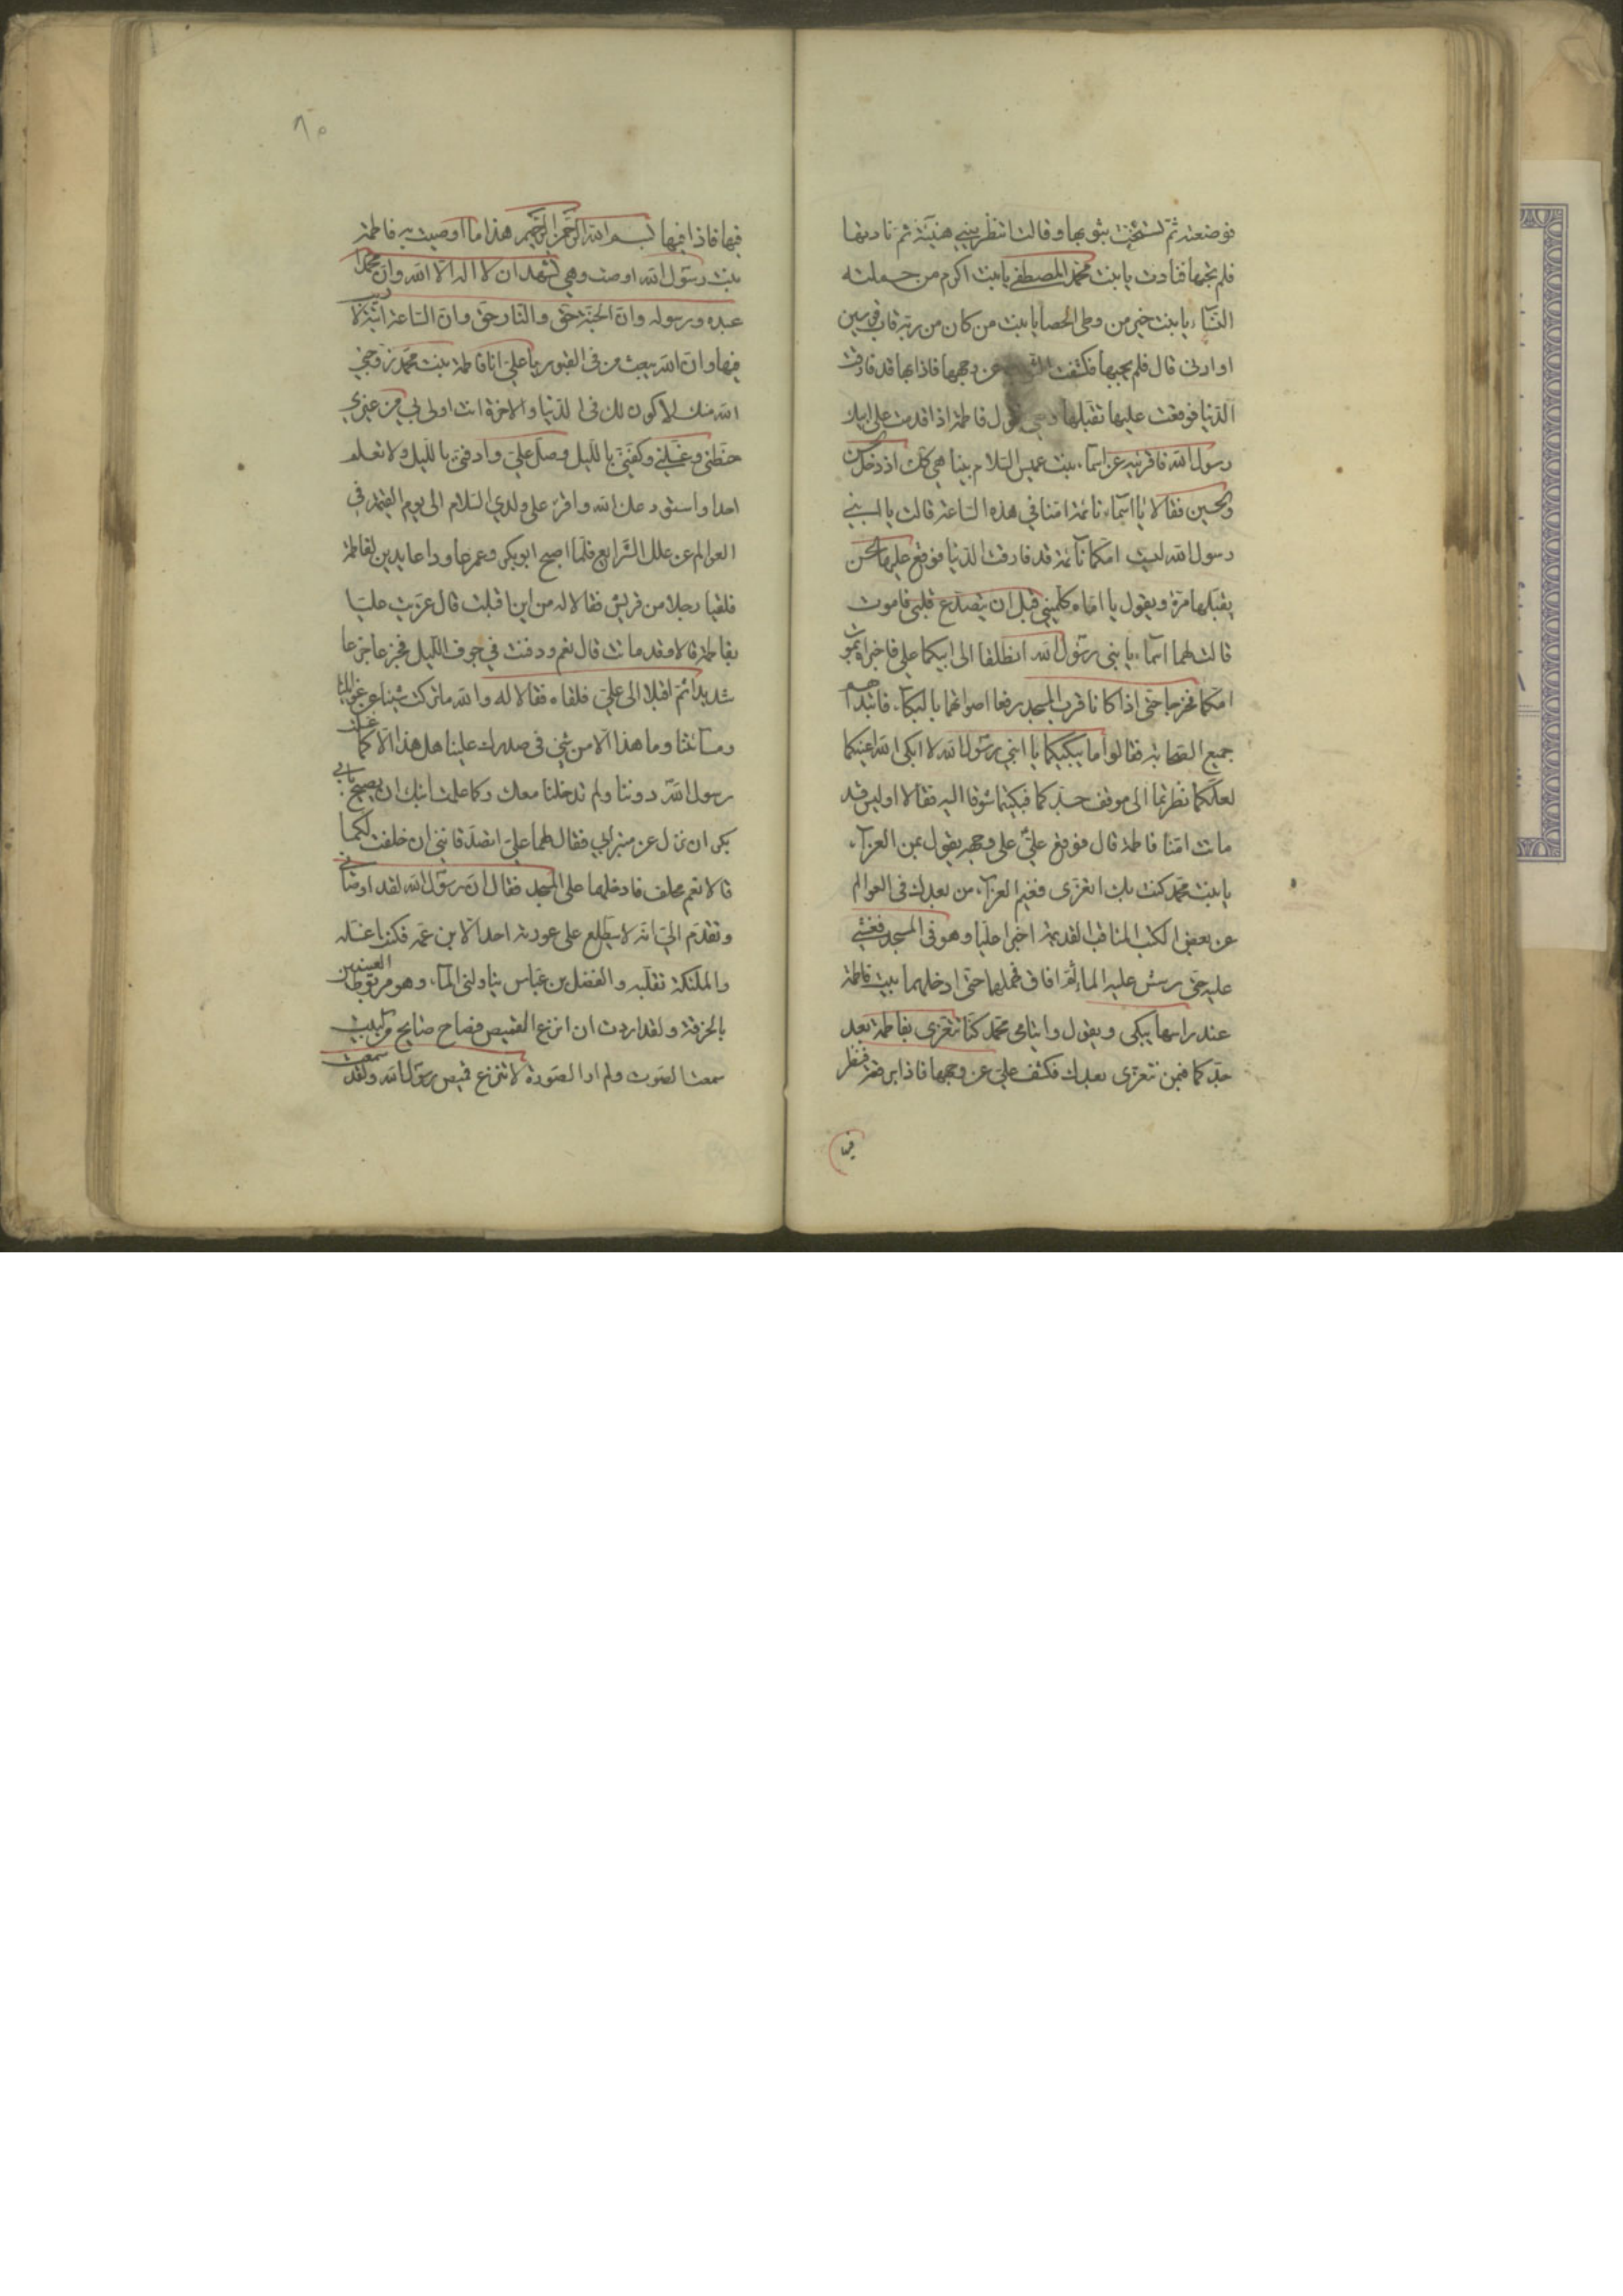 فوضعته ثم تسجّت بثوبها وقالت انتظريني هنيئة ثم نادينها
فلم تجبها فنادت يا بنت محمد المصطفى يا بنت اكرم من حملته
النساء يا بنت خير من وطى الحصا يا بنت من كان من ربه قاب قوسين
او ادنى قال فلم تجبها فكشفت عن وجهها فاذا بها قد فارقت
الدنيا فوقعت عليها تقبلها وهي تقول فاطمة اذا قدمت على ابيك
رسول الله فاقرئيه عن اسماء بنت عميس السلام بينا هي كك اذ دخل الحسن
والحسين فقالا يا اسماء نائمة امنا في هذه الساعة قالت يا ابني
رسول الله ليست امكما نائمة قد فارقت الدنيا فوقع عليها الحسن
يقبلها مرة ويقول يا اماه كلميني قبل ان يتصدع قلبي فاموت
قالت لهما اسماء يا بني رسول الله انطلقا الى ابيكما علي فاخبراه بموت
امكما فخرجا حتى اذا كانا قرب المسجد رفعا اصواتهما بالبكاء فابتدأهم
جميع الصحابة فقالوا ما يبكيكما يا ابني رسول الله لا ابكى الله اعينكما
لعلكما نظرتما الى موقف جدكما فبكيتما شوقا اليه فقالا او ليس قد
ماتت امنا فاطمة قال فوقع علي على وجهه يقول بمن العزاء
يا بنت محمد كنت بك اتعزى ففيم العزاء من بعدك في العوالم
عن بعض الكتب المناقب القديمة اخبرا عليا وهو في المسجد فغشي
عليه حتى رش عليه الماء ثم افاق فحملهما حتى ادخلهما بيت فاطمة
عند راسها يبكي ويقول وايتامى محمد كنا نتعزى بفاطمة بعد
جدكما فبمن نتعزى بعدك فكشف علي عن وجهها فاذا برقعة فنظر
فيها
٨٠
فيها فاذا فيها بسم الله الرحمن الرحيم هذا ما اوصيت به فاطمة
بنت رسول الله اوصت وهي تشهد ان لا اله الا الله وان محمدا
عبده ورسوله وان الجنة حق والنار حق وان الساعة اتية لا ريب
فيها وان الله يبعث من في القبور يا علي انا فاطمة بنت محمد زوجني
الله منك لاكون لك في الدنيا والاخرة انت اولى بي من غيري
حنطني وغسلني وكفني بالليل وصل علي وادفني بالليل ولا تعلم
احدا واستودعك الله واقرء على ولدي السلام الى يوم القيمة في
العوالم عن علل الشرايع فلما اصبح ابوبكر وعمر جاودا عايدين لفاطمة
فلقيا رجلا من قريش فقالا له من اين اقبلت قال عزيت عليا
بفاطمة قالا وقد ماتت قال نعم ودفنت في جوف الليل فجزعا جزعا
شديدا ثم اقبلا الى علي فلقاه فقالا له والله ما تركت شيئا من غوائلنا
ومسائتنا وما هذا الا من شئ في صدرك علينا هل هذا الا كما غسلت
رسول الله دوننا ولم تدخلنا معك وكما علمت ابنك ان يصيح بابي
بكر ان نزل عن منبر ابي فقال لهما علي اتصدقانني ان حلفت لكما
قالا نعم فحلف فادخلهما على المسجد فقال ان رسول الله لقد اوصاني
وتقدم الي انه لا يطلع على عورته احد الا ابن عمه فكنت اغسله
والملئكة تقلبه والفضل بن عباس يناولني الماء وهو مربوط العينين
بالخرقة ولقد اردت ان انزع القميص فصاح صايح من البيت
سمعت الصوت ولم ار الصورة لا تنزع قميص رسول الله ولقد سمعت